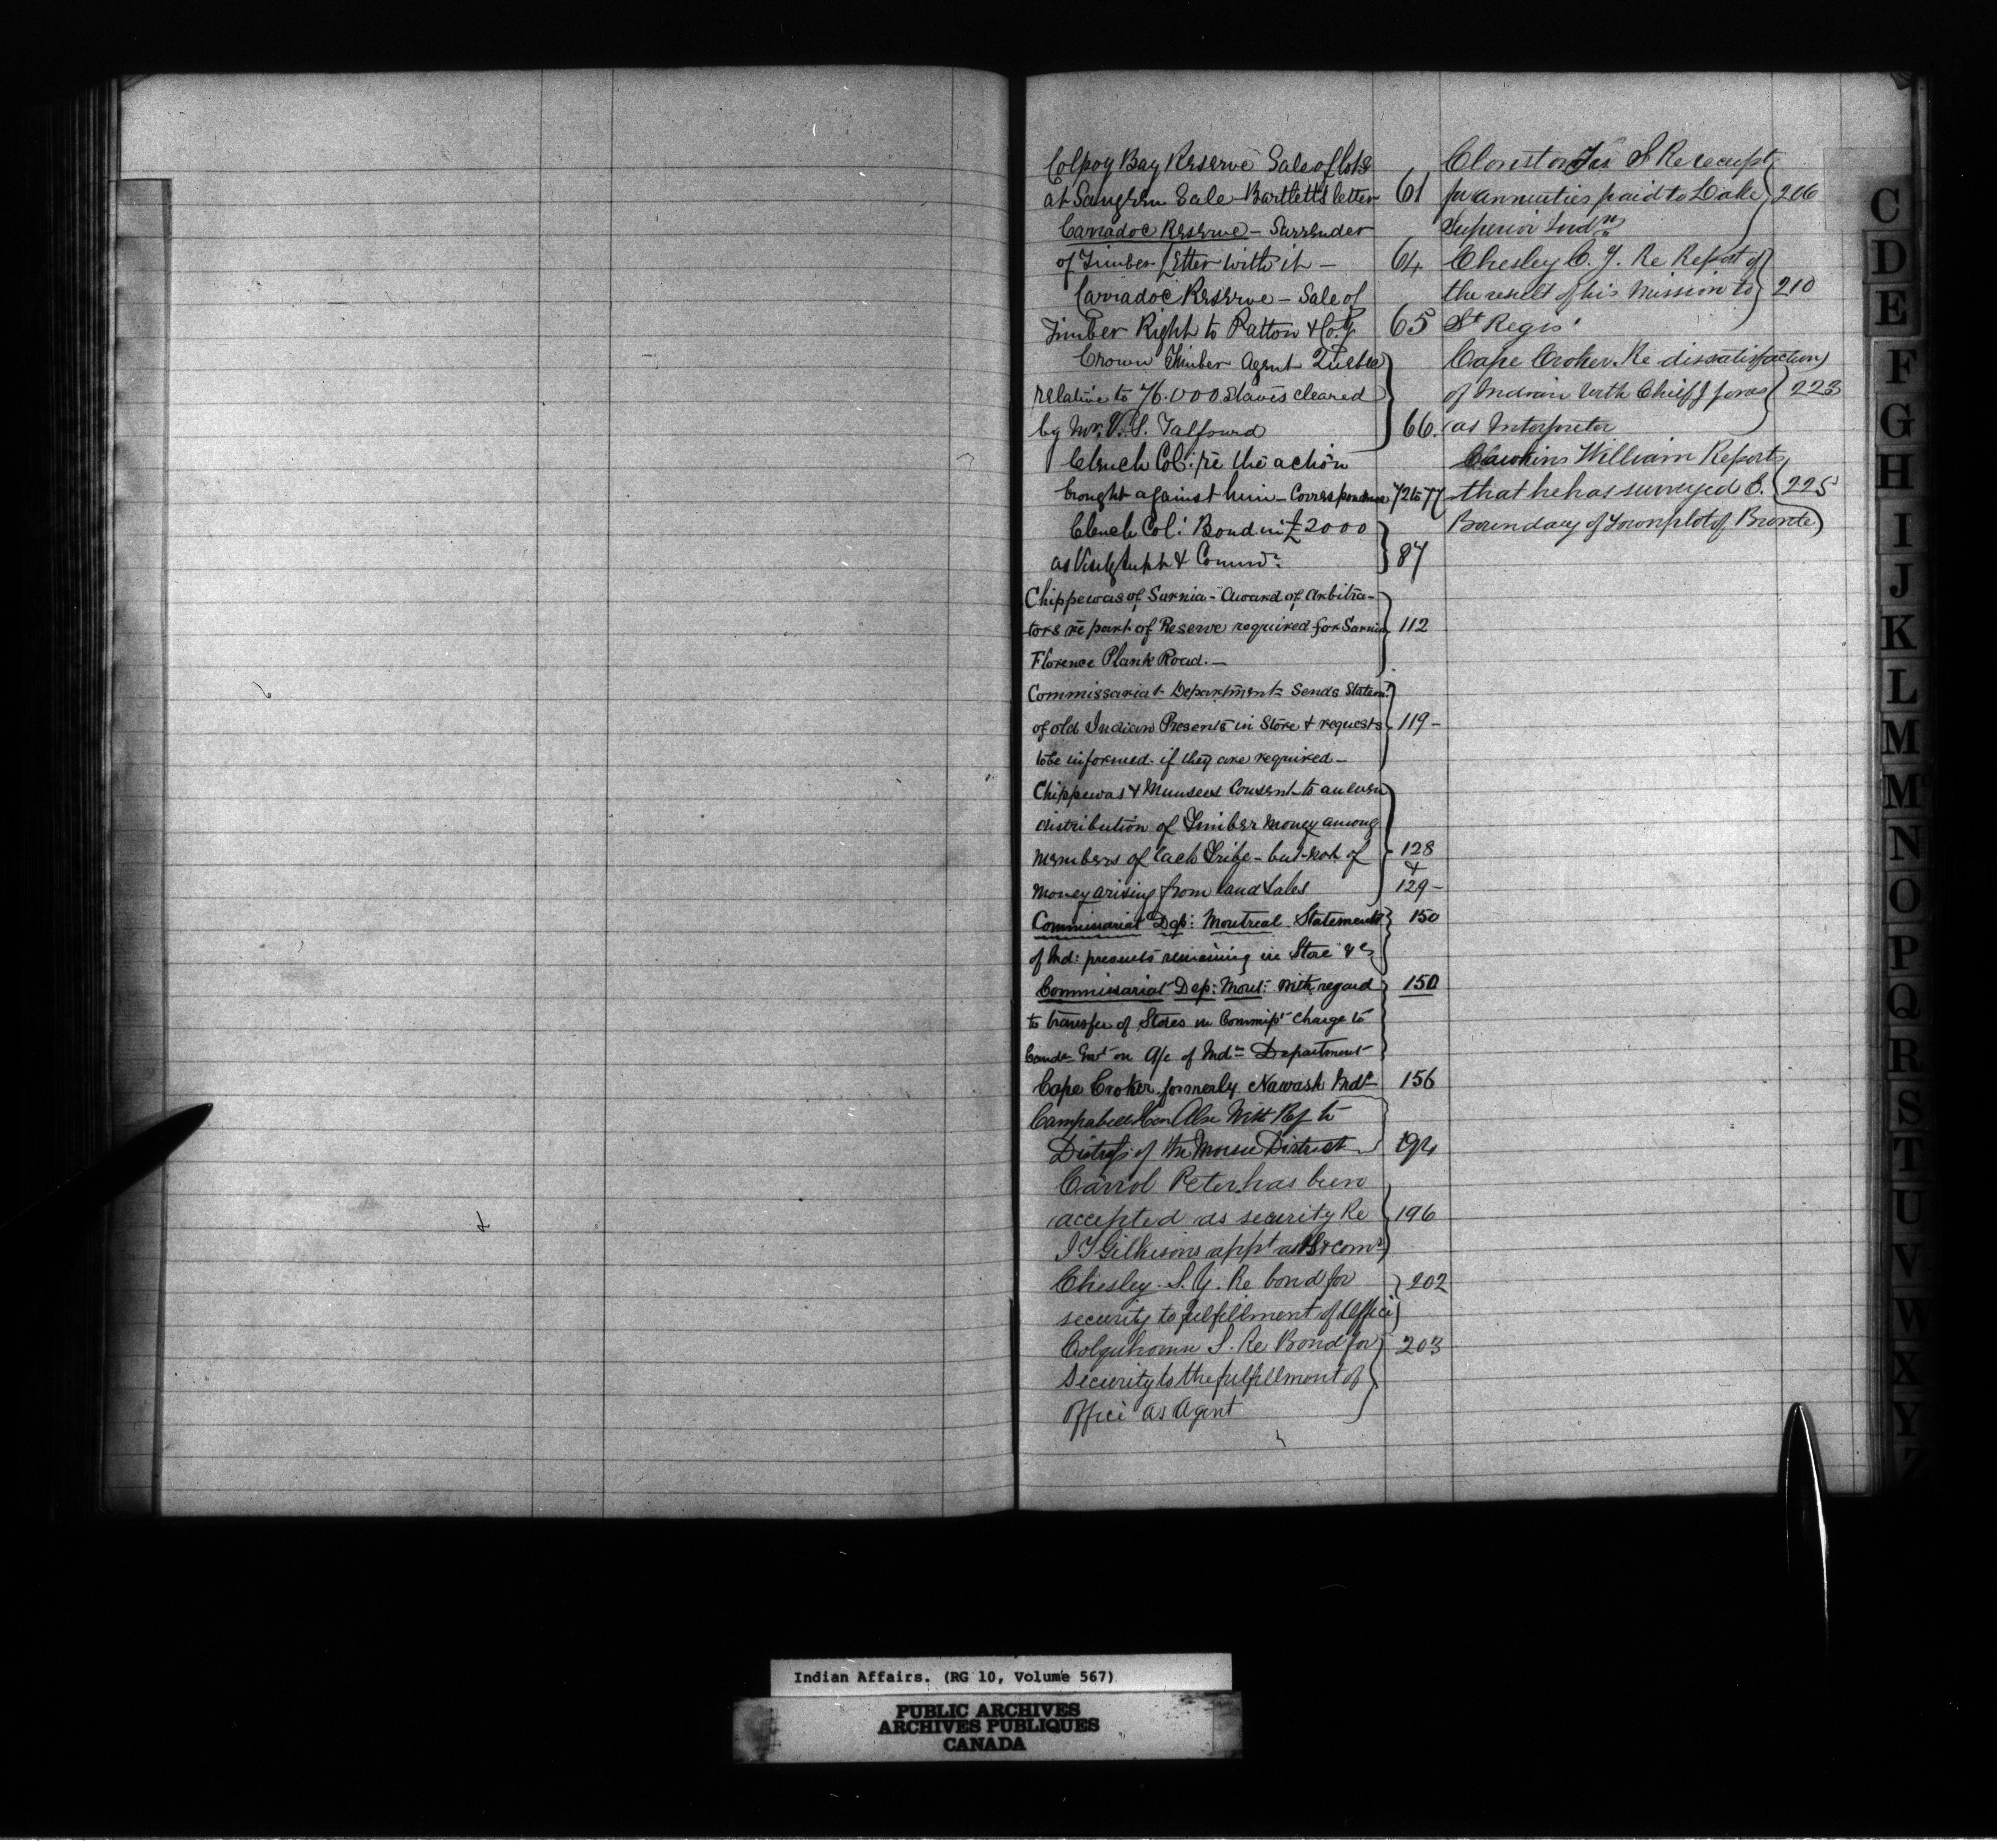 Colpoy Bay Reserve Sale of lots
at Saugeen Sale - Bartlett's letter 61
Carradoc Reserve - Surrender
of Timber Letter with it - 64
Carradoc Reserve - Sale of
Timber Right to Patton & Coy 65
Crown Timber Agent Quebec
relative to 76.000 staves cleared
by Mr. Talfourd 66.
Clench Col: re the action
brought against him - Correspondence 72 to 77
Clench Col: Bond in £2000
as Visitg Supt & Commr. 87
Chippewas of Sarnia - Award of Arbitra-
tors re part of Reserve required for Sarnia 112
Florence Plank Road. -
Commissariat Department sends Statemt
of old Indian Presents in Store & requests 119 -
to be informed if they are required -
Chippewas & Munsees Consent to an even
distribution of Timber Money among
members of each Tribe - but not of 128
&
money arising from land sales 129 -
Commissariat Dep: Montreal Statements 150
of Ind: presents remaining in Store &c
Commissariat Dep: Mont: with regard 150
to transfer of Stores in Commisst charge to
Canda Govt on A/c of Indn Department
Cape Croker formerly Nawash Inds 156
Campbell Hon Alex With Ref to
Distress of the Moisie District 194
Carrol Peter has been
accepted as security Re 196
J T Gilkisons appt as & comr
Chesley S. Y. Re bond for 202
security to fulfillment of Office
Colquhoun S. Re Bond for 203
Security to the fulfillment of
office as Agent
Clouston Jas S Re receipt
for annuities paid to Lake 206
Superior Indns
Chesley Re Report of
the result of his Mission to 210
St Regis
Cape Croker Re dissatisfaction
of Indian with Chief Jones 223
as Interpreter
William Reports
that he has surveyed E. 225
Boundary of Townplot of Bronte
C
D
E
F
G
H
I
J
K
L
M
Mc
N
O
P
Q
R
S
T
U
V
W
X
Y
Z
Indian Affairs. (RG 10, Volume 567)
PUBLIC ARCHIVES
ARCHIVES PUBLIQUES
CANADA